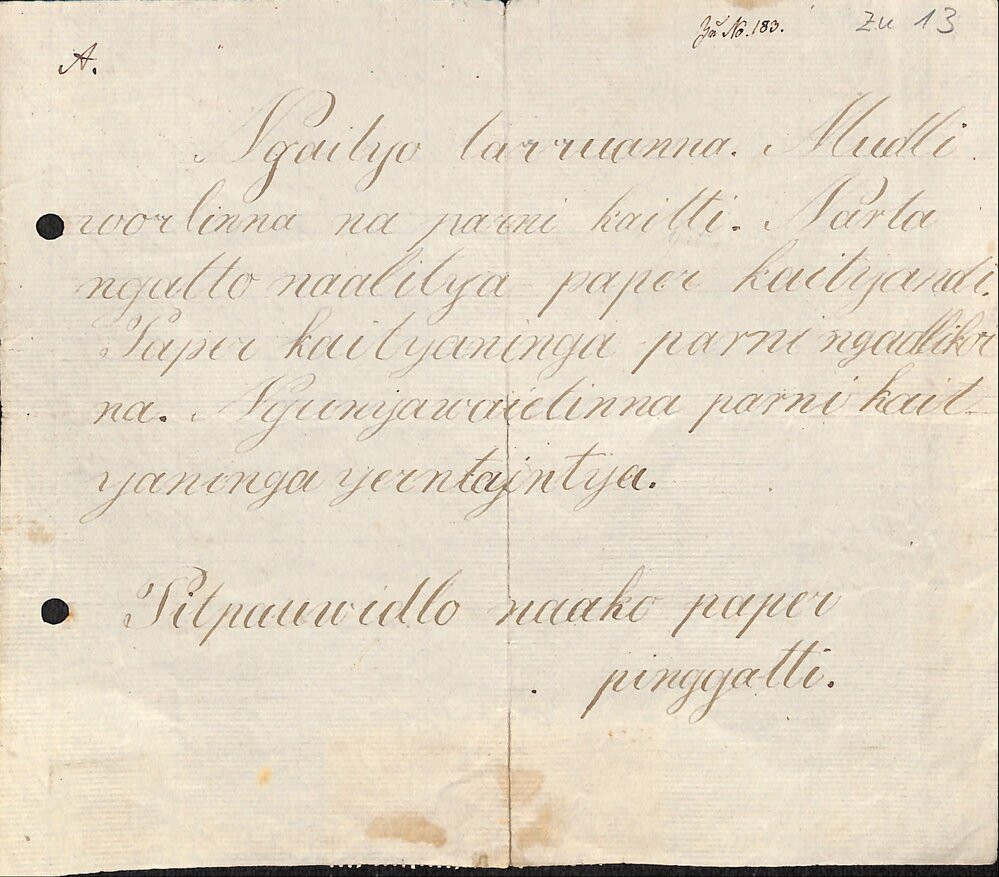 Zu No. 183.
zu 13
A.
Ngaityo tarruanna. Mudli
worlinna na parni kaitti. Narta
ngatto naalitya paper kaityandi.
Paper kaityaninga parni ngadlikor
na. Ngunyawaietinna parni kait-
yaninga yerntajntya.
Pitpauwidlo naako paper
pinggatti.